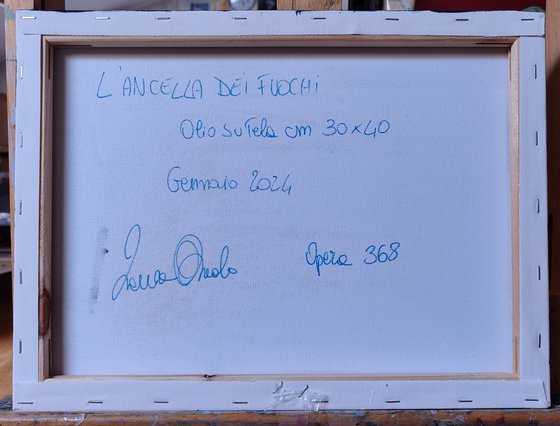 L'ANCELLA DEI FUOCHI
Olio su Tela cm 30x40
Gennaio 2024
Opera 368